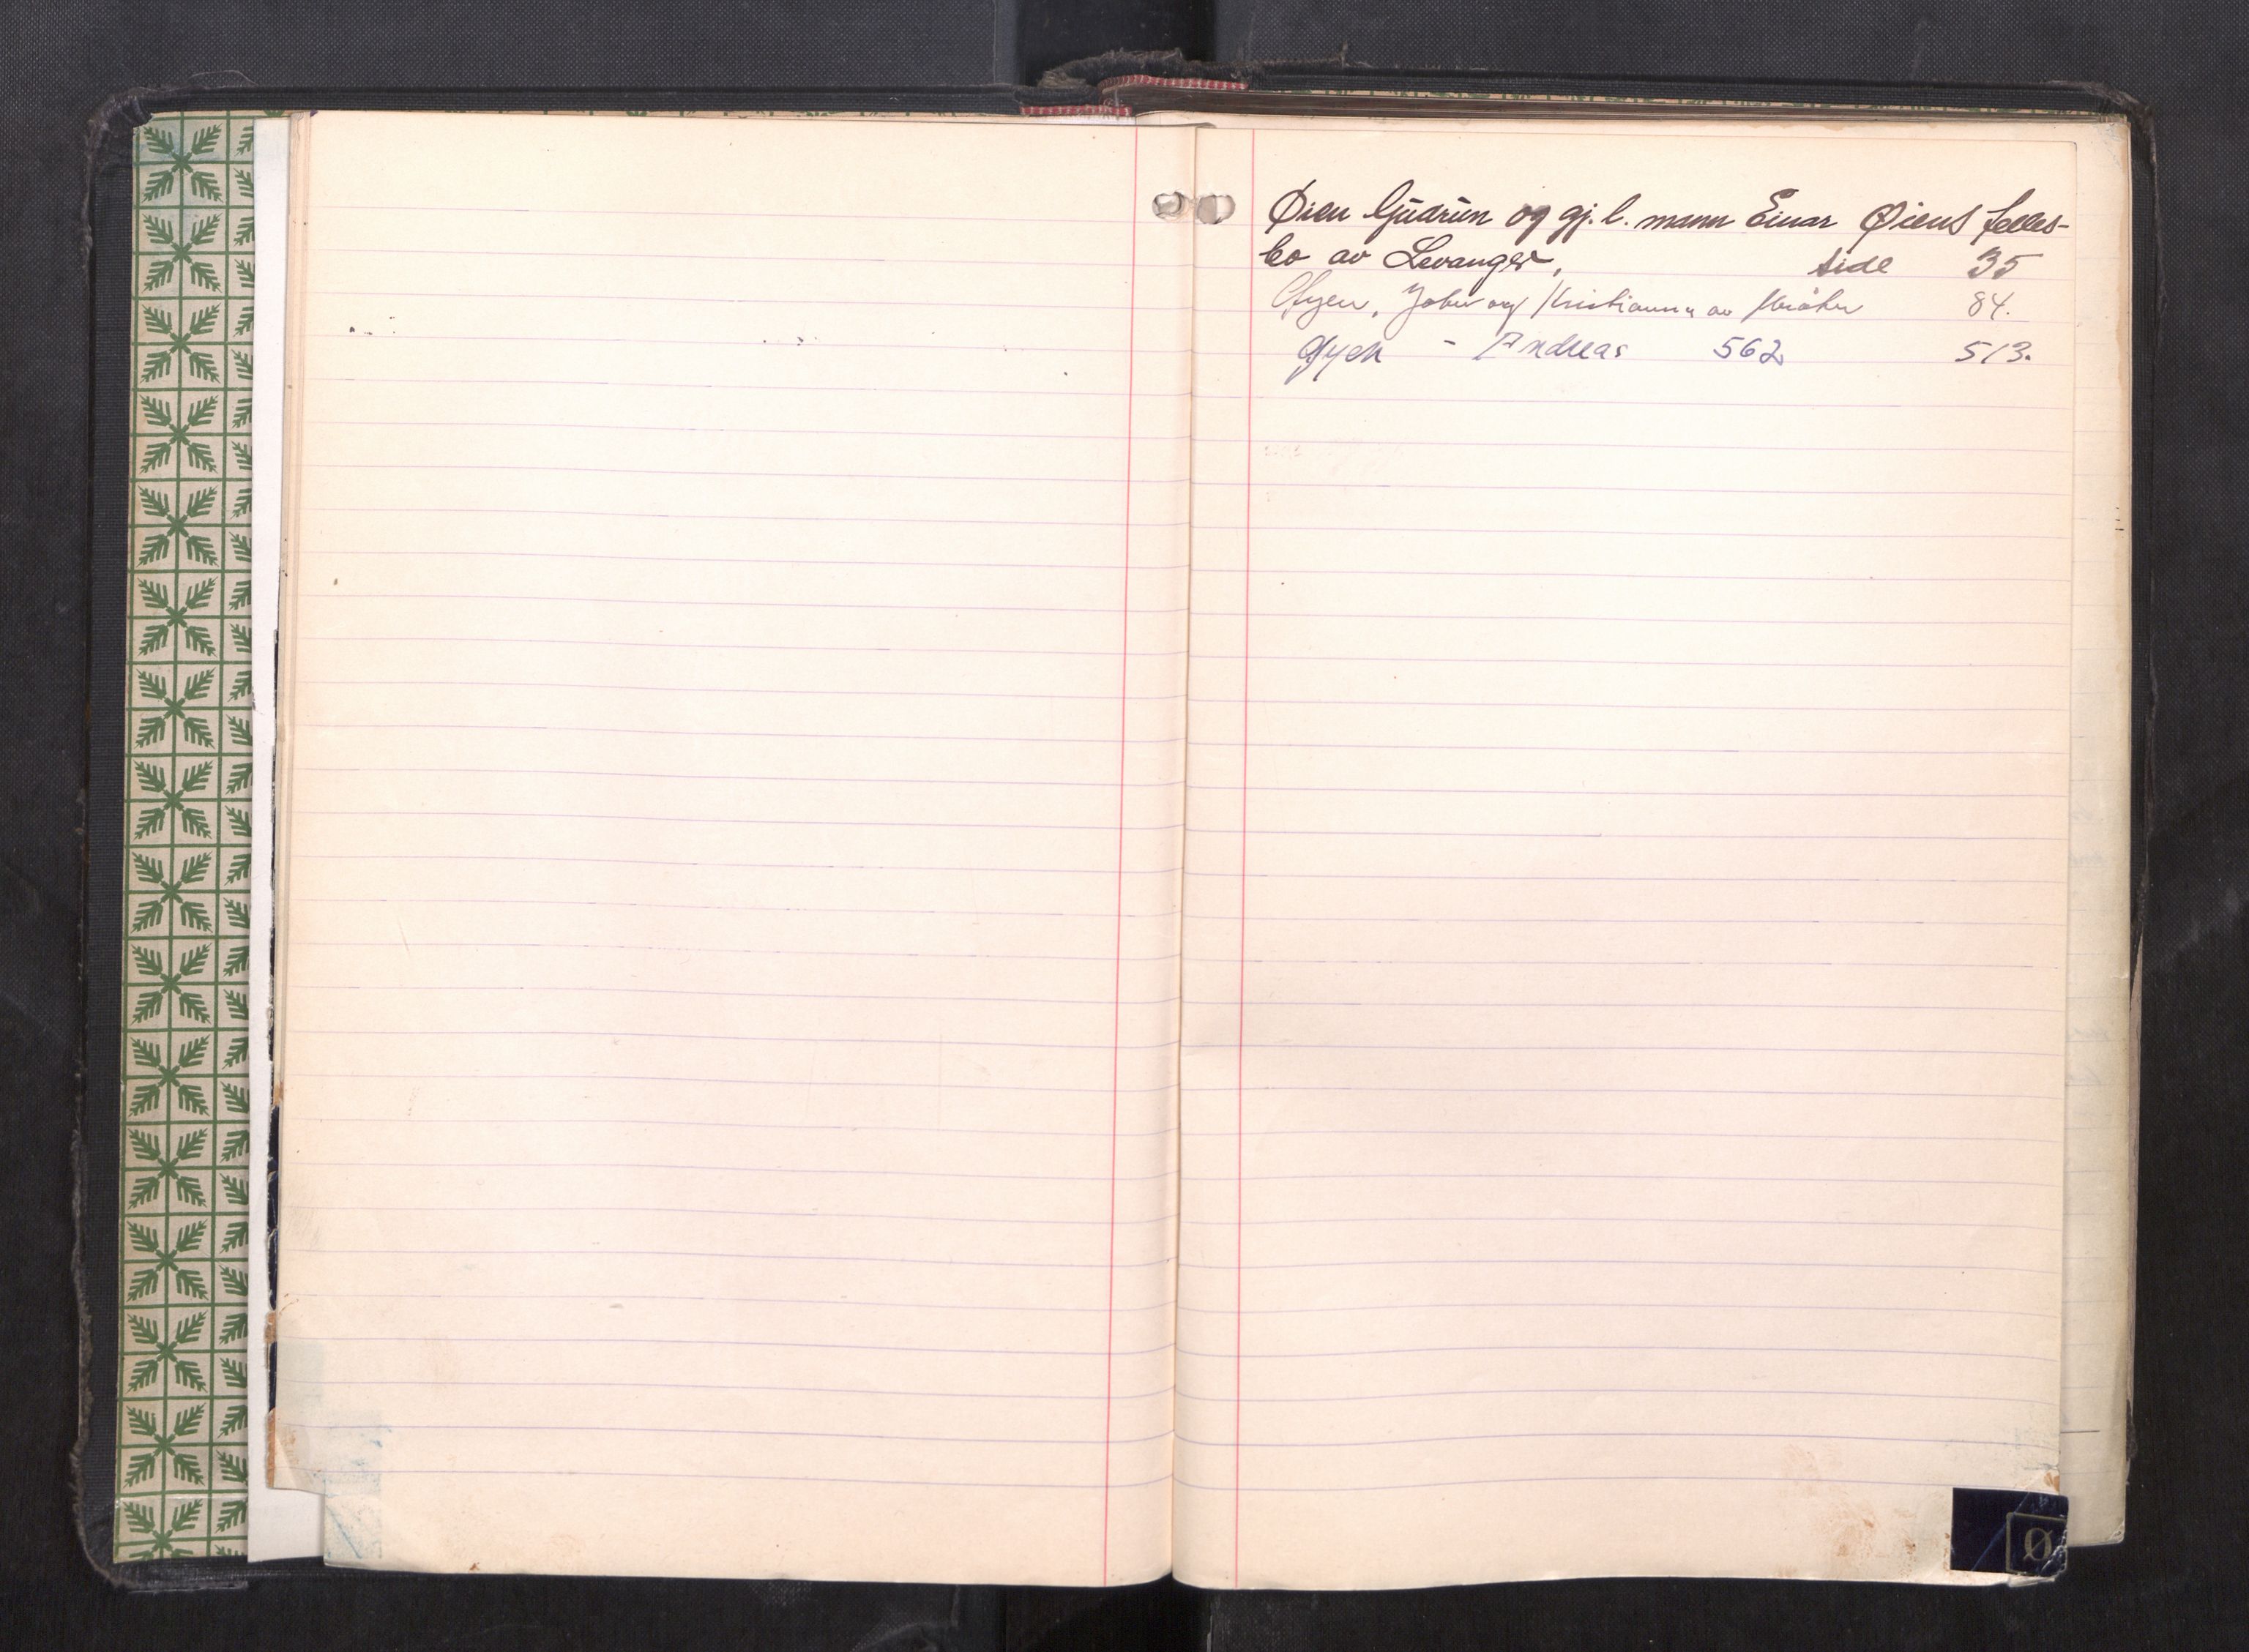 Øien Gudrun og gj. l. mann Einar Øiens felles-
bo av Levanger, side 35
Øyen, Johan og Kristianna av 84.
Øyen - Andreas 562 513.
Ø